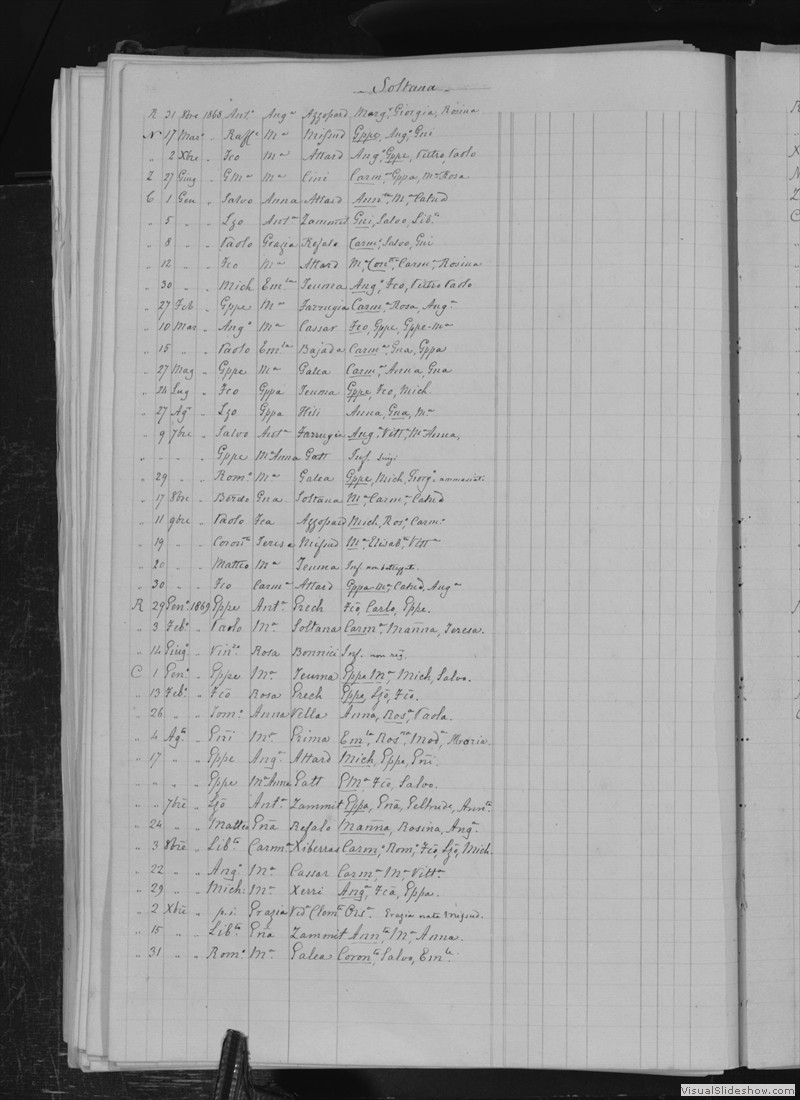 Soltana
R 31 Xbre 1868 Ant.o Ang.a Azzopard Marg.a, Giorgia, Rosina
N 17 Mar.o " Raff.e M.a Mifsud Gppe, Ang.o Gni
" 2 Xbre " Fco M.a Attard Ang.o, Gppe, Pietro, Paolo
Z 27 Giug " G.M.a M.a Cini Carm.a, Gppa, M.a Rosa
C 1 Gen " Salvo Anna Attard Ann.ta, M.a, Catnd
" 5 " " Lzo Ant.a Zammit Gni, Salvo, Lib.to
" 8 " " Paolo Grazia Refalo Carm.o, Salvo, Gni
" 12 " " Fco M.a Attard M.a Con.ta, Carm.a, Rosina
" 30 " " Mich Em.la Teuma Ang.o, Fco, Pietro Paolo
" 27 Feb " Gppe M.a Farrugia Carm.a, Rosa, Ang.a
" 10 Mar " Ang.o M.a Cassar Fco, Gppe, Gppe-M.a
" 15 " " Paolo Em.la Bajada Carm.a, Gna, Gppa
" 27 Mag " Gppe M.a Galea Carm.a, Anna, Gna
" 24 Lug " Fco Gppa Teuma Gppe, Fco, Mich
" 27 Ag.o " Lzo Gppa Hili Anna, Gna, M.a
" 9 7bre " Salvo Ant.a Farrugia Ang.a, Vitt.a, M.a Anna,
" - - " Gppe M.a Anna Gatt Inf.
" 29 " " Rom.o M.a Galea Gppe, Mich, Giorg.o
" 17 8bre " Gna Soltana M.a, Carm.a, Catnd
" 11 9bre " Paolo Fca Azzopard Mich, Ros.o, Carm.o
" 19 " Coron.to Teresa Mifsud M.a, Elisab.ta, Vitt.a
" 20 " Matteo M.a Teuma Inf. non battezzato
" 30 " " Fco Carm.a Attard Gppa-M.a, Catnd, Ang.a
R 29 Gen.o 1869 Gppe Ant.a Grech Fco, Carlo, Gppe.
" 3 Feb.o " Paolo M.a Soltana Carm.a, Mañña, Teresa.
" 14 Giug.o " Vin.zo Rosa Bonnici Inf. non reg.
C 1 Gen.o " Gppe M.a Teuma Gppe M.a, Mich, Salvo.
" 13 Feb.o " Fco Rosa Grech Gppe, Lzo, Fco.
" 26 " " Tom.o Anna Vella Anna, Ros.a, Paola.
" 4 Ag.to " Gni M.a Prima Em.la, Ros.na, Mod.a, Maria.
" 17 " " Gppe Ang.a Attard Mich, Gppe, Gni.
" " " Gppe M.a Anna Gatt G M.a Fco, Salvo.
" " 7bre " Lzo Ant.a Zammit Gppa, Gna, Geltrude, Ann.ta
" 24 " " Matteo Gna Refalo Mañña, Rosina, Ang.a
" 3 8bre " Lib.to Carm.a Xiberras Carm.o, Rom.o, Fco, Lzo, Mich.
" 22 " " Ang.o M.a Cassar Carm.a, M.a, Vitt.a
" 29 " " Mich: M.a Xerri Ang.a, Fca, Gppa.
" 2 Xbre " p.i. Grazia Ved.a Clem.te Ors.a Grazia nata Mifsud.
" 15 " " Lib.to Gna Zammit Ann.ta, M.a, Anna.
" 31 " " Rom.o M.a Galea Coron.to, Salvo, Em.le
VisualSlideshow.com